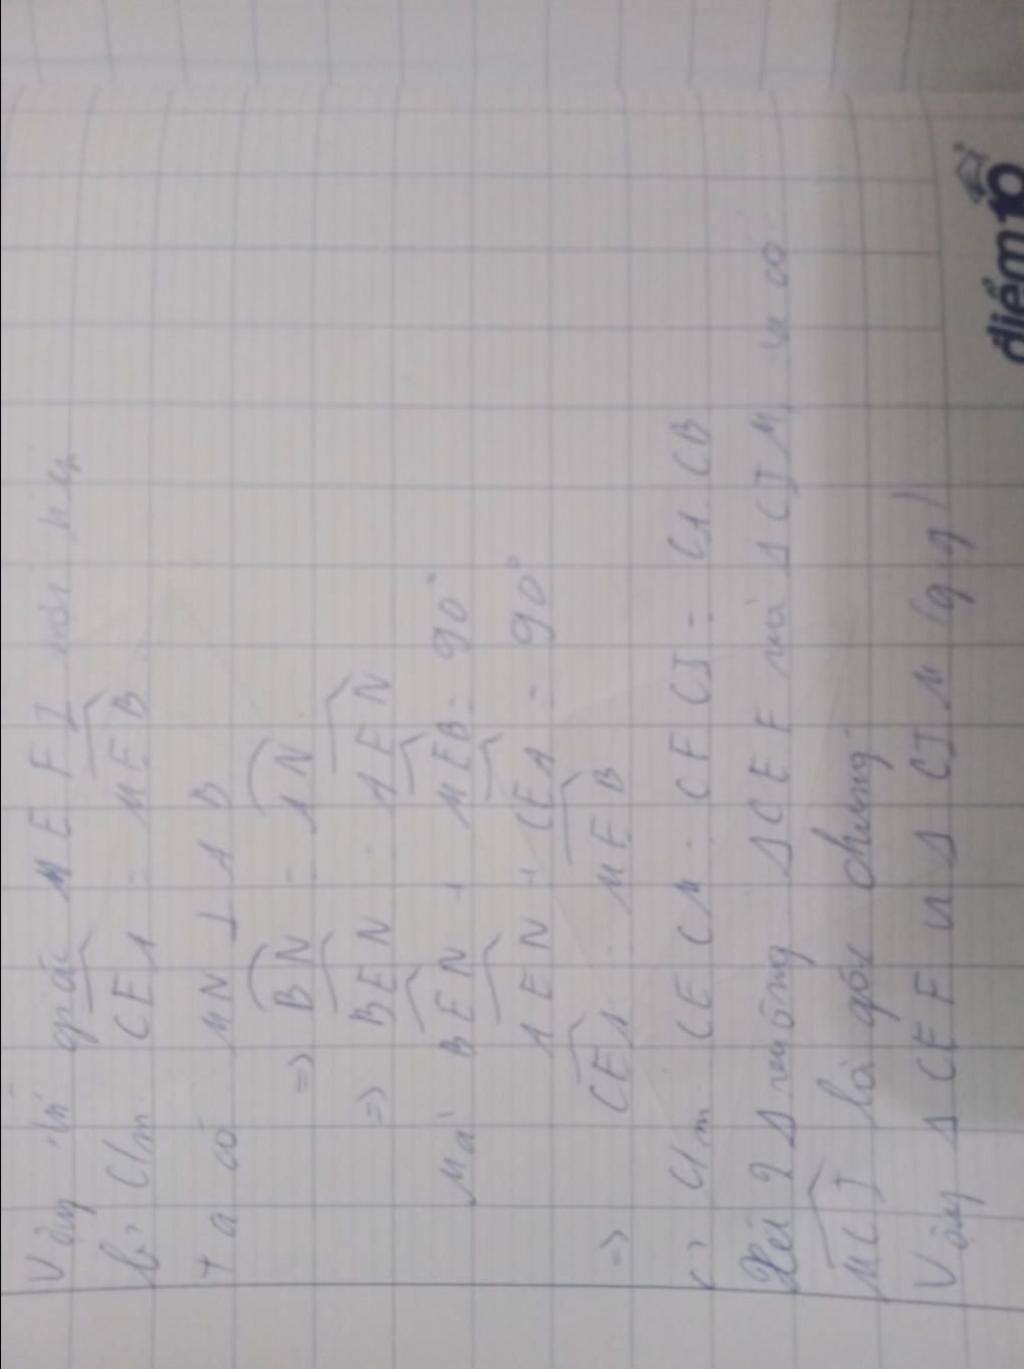 Vậy tứ giác MEFI nội tiếp
b, C/m CEA = MEB
Ta có MN ⊥ AB
=> BN = AN
=> BEN = AEN
Mà BEN + MEB = 90°
AEN + CEA = 90°
=> CEA = MEB
c, C/m CE.CM = CF.CI = CA.CB
Xét 2Δ vuông ΔCEF và ΔCIM, ta có
MCI là góc chung
Vậy ΔCEF ~ ΔCIM (g.g)
điểm10